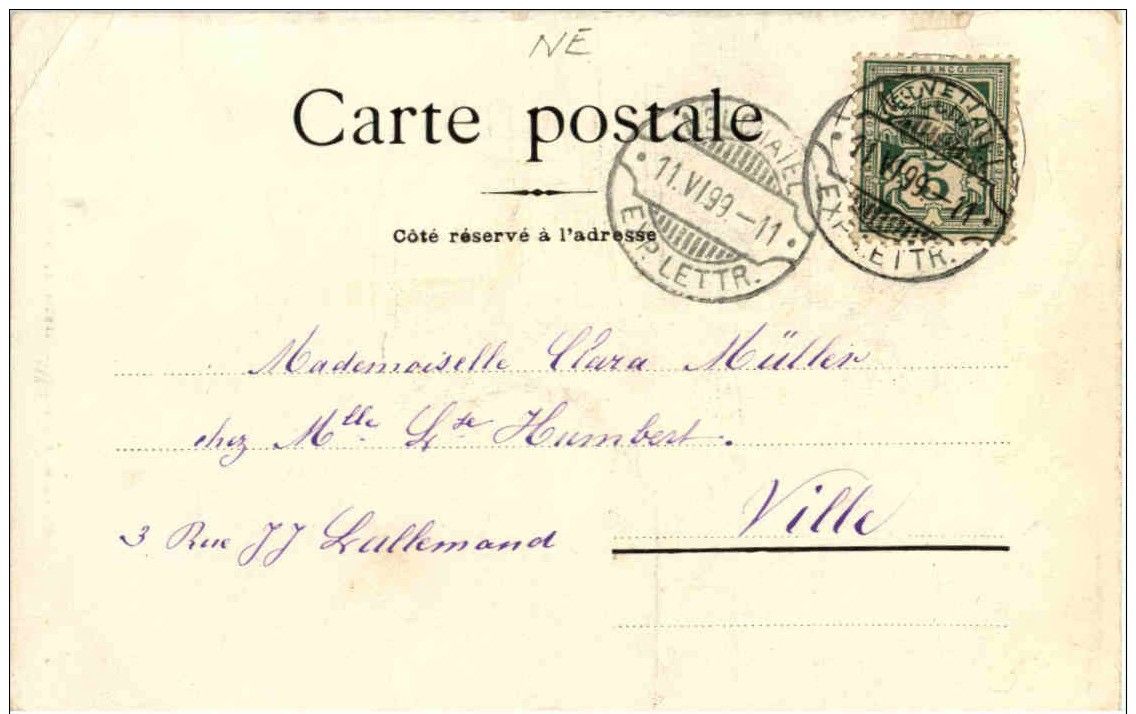 NE
Carte postale
Côté réservé à l'adresse
FRANCO
11.VI.99-11
EXP. LETTR.
11.VI.99-11
EXP. LETTR.
5
Mademoiselle Clara Müller
chez Mlle. Lse Humbert.
Ville
3 Rue JJ Lallemand